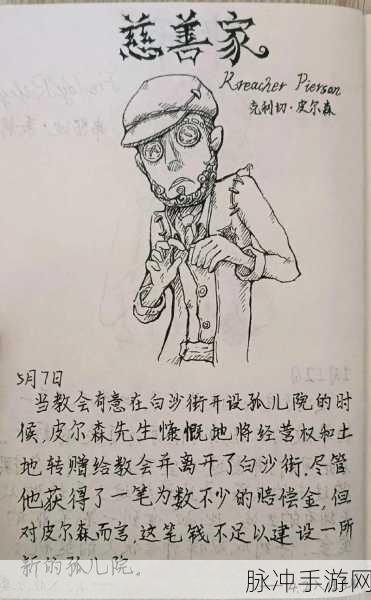 慈善家
Kreacher Pierson
克利切·皮尔森
5月7日
当教会有意在白沙街开设孤儿院的时
候,皮尔森先生慷慨地将经营权和土
地转赠给教会并离开了白沙街.尽管
他获得了一笔为数不少的赔偿金,但
对皮尔森而言,这笔钱不足以建设一所
新的孤儿院。
脉冲手游网